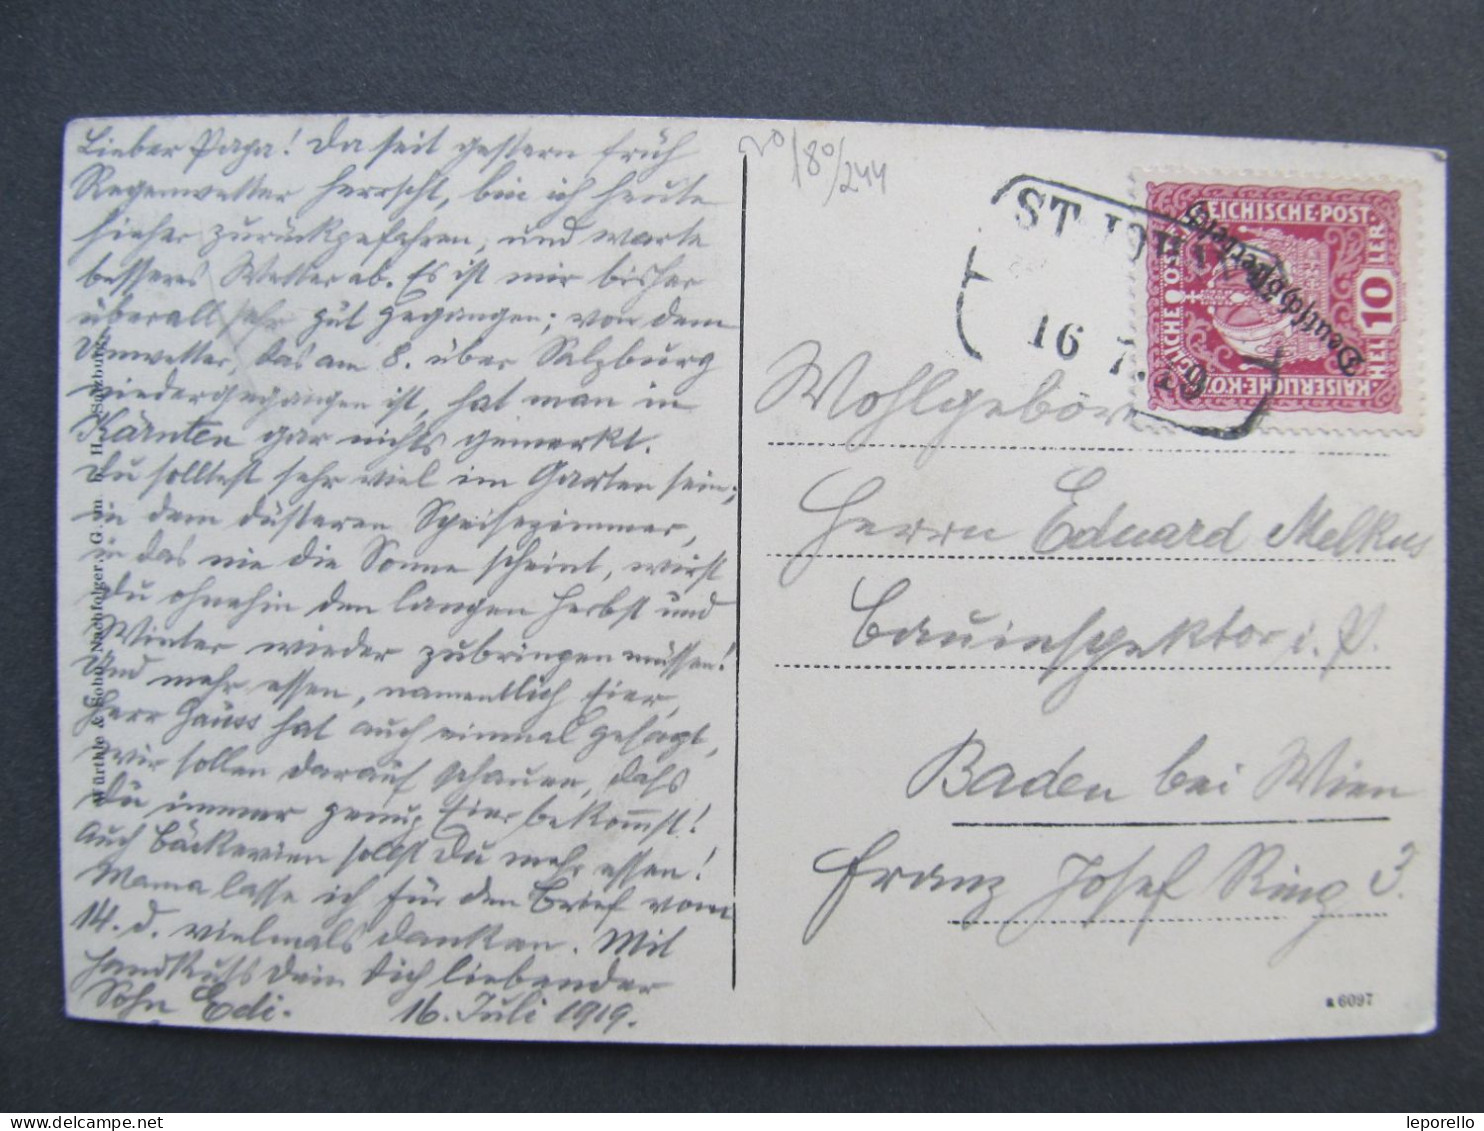 Lieber Papa! Da seit gestern früh
Regenwetter herrscht, bin ich heute
hieher zurückgefahren, und warte
besseres Wetter ab. Es ist mir bisher
überall sehr gut gegangen; von dem
Unwetter, das am 8. über Salzburg
niedergegangen ist, hat man in
Kärnten gar nichts gemerkt.
Du solltest sehr viel im Garten sein;
in dem düsteren Speisezimmer,
in das nie die Sonne scheint, wirst
Du ohnehin den langen Herbst und
Winter wieder zubringen müssen!
Und mehr essen, namentlich Eier,
Herr Gauss hat auch einmal gesagt,
wir sollen darauf schauen, dass
Du immer genug Eier bekommst!
Auch Bäckereien sollst Du mehr essen!
Mama lasse ich für den Brief vom
14. d. vielmals danken. Mit
Handkuss Dein Dich liebender
Sohn Edi. 16. Juli 1919.
Würthle & Sohn Nachfolger, G. m. b. H., Salzburg.
20/180/244
ST. JOH
16 7. 19
Deutschösterreich
KAISERLICHE KÖNIGLICHE ÖSTERREICHISCHE POST
HELLER 10
Wohlgeboren
Herrn Eduard Melkus
Bauinspektor i. P.
Baden bei Wien
Franz Josef Ring 3.
a 6097
leporello